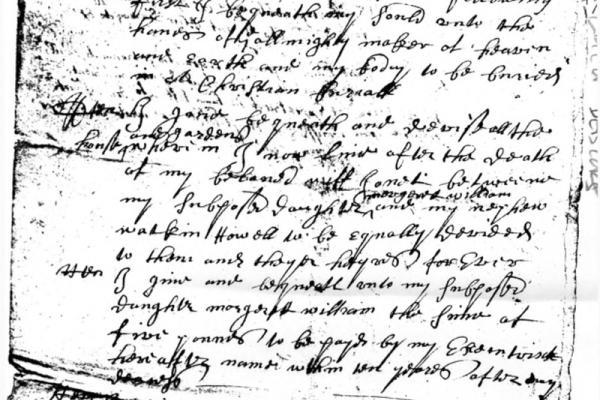 First I bequeath my Sould unto the
hands of all mighty maker of heaven
and earth and my body to be buried
in Christian buriall
Item I give bequeath and devise all the
house and gardens wherein I now live after the death
of my beloved wiff Jonet betweene
my Supposed daughter margret william and my nephew
watkin Howell to be Equally devided
to them and theyr heyres for Ever
Item I give and bequeath unto my Supposed
daughter margrett william the Sume of
five pounds to be payd by my Executrick
hereafter named within ten yeares after my
decease